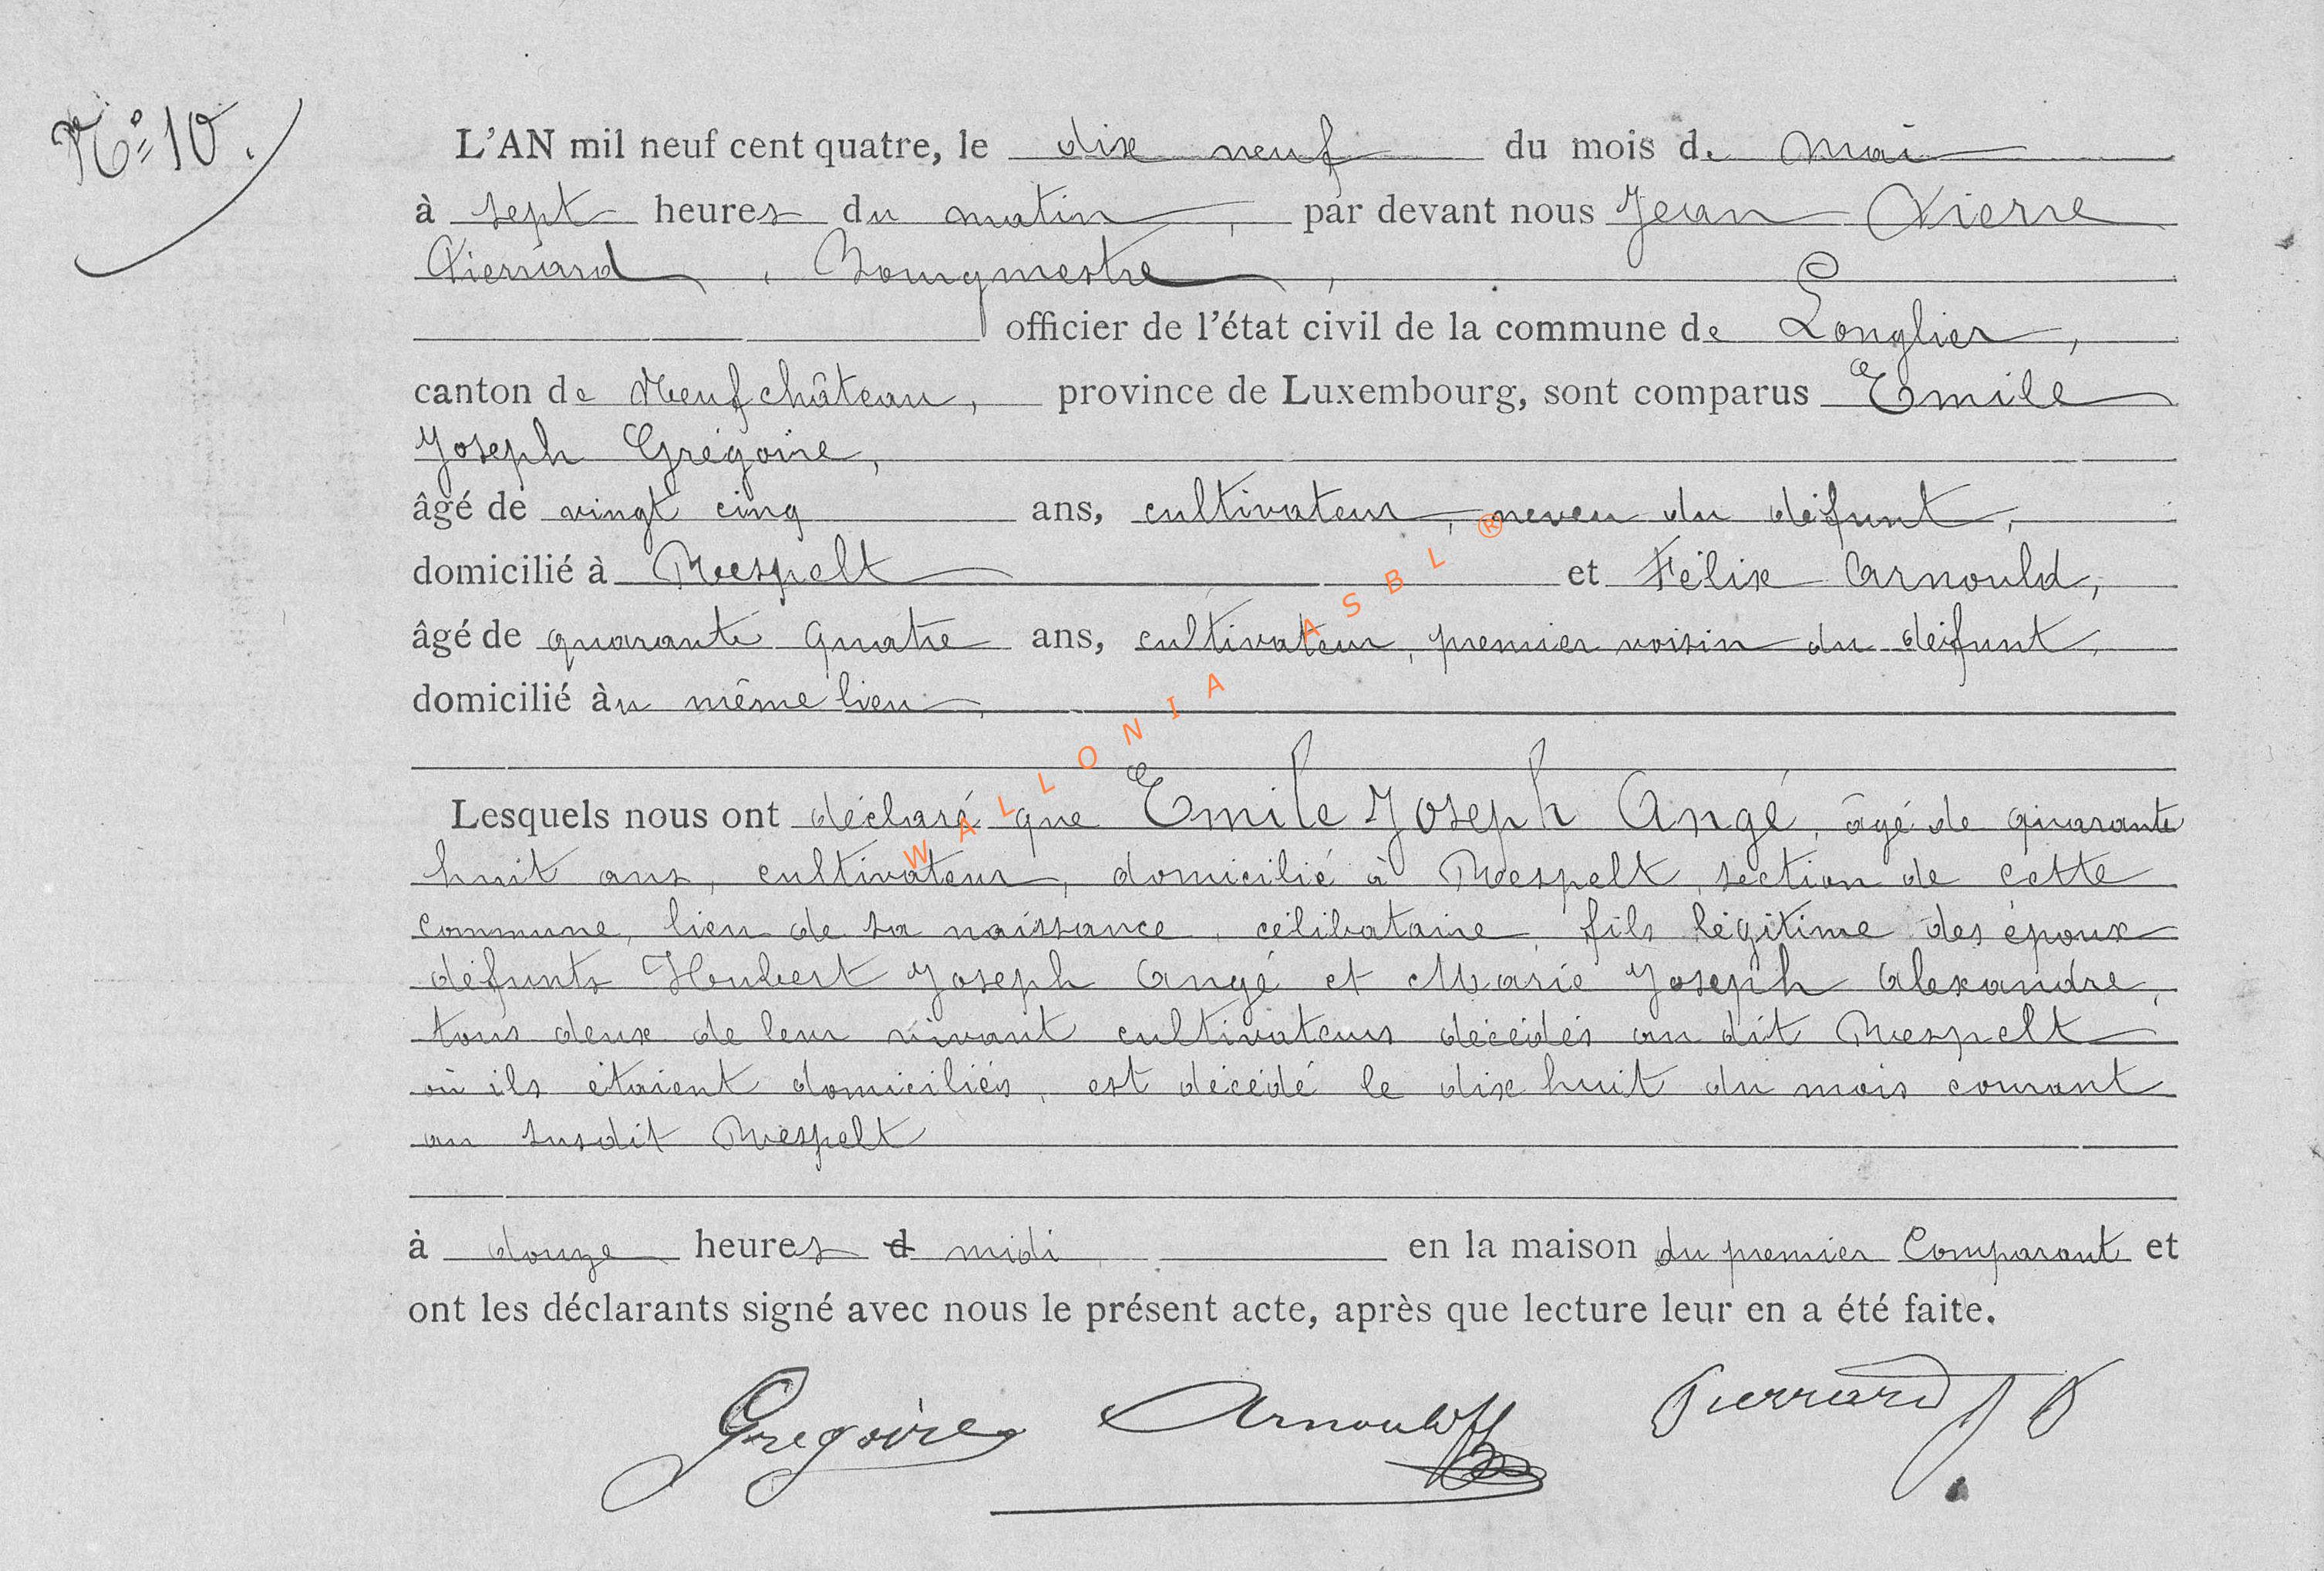 N.º 10.
L'AN mil neuf cent quatre, le dix neuf du mois de mai
à sept heures du matin, par devant nous Jean Pierre
Pierrard, Bourgmestre,
officier de l'état civil de la commune de Longlier,
canton de Neufchâteau, province de Luxembourg, sont comparus Emile
Joseph Grégoire,
âgé de vingt cinq ans, cultivateur, neveu du défunt,
domicilié à Respelt et Félix Arnould,
âgé de quarante quatre ans, cultivateur, premier voisin du défunt,
domicilié au même lieu,
Lesquels nous ont déclaré que Emile Joseph Angé, âgé de quarante
huit ans, cultivateur, domicilié à Respelt, section de cette
commune, lieu de sa naissance, célibataire, fils légitime des époux
défunts Hubert Joseph Angé et Marie Joseph Alexandre,
tous deux de leur vivant cultivateurs décédés au dit Respelt
où ils étaient domiciliés, est décédé le dix huit du mois courant
au susdit Respelt
à douze heures d midi en la maison du premier Comparant et
ont les déclarants signé avec nous le présent acte, après que lecture leur en a été faite.
Grégoire Arnould Pierrard JP
WALLONIA ASBL ®